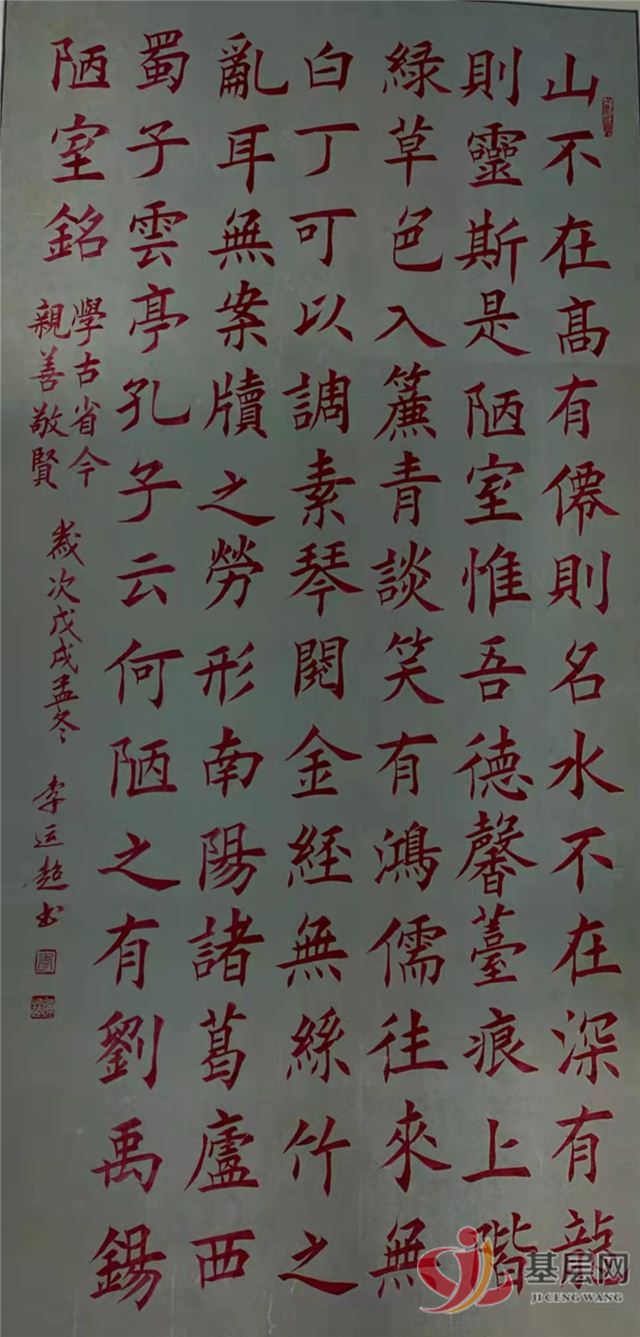 山不在髙有僊則名水不在深有龍
則靈斯是陋室惟吾德馨薹痕上階
綠草色入簾青談笑有鴻儒往來無
白丁可以調素琴閱金經無絲竹之
亂耳無案牘之勞形南陽諸葛廬西
蜀子雲亭孔子云何陋之有劉禹錫
陋室銘
學古省今
親善敬賢
歲次戊戌孟冬
李运超书
基层网
JI CENG WANG